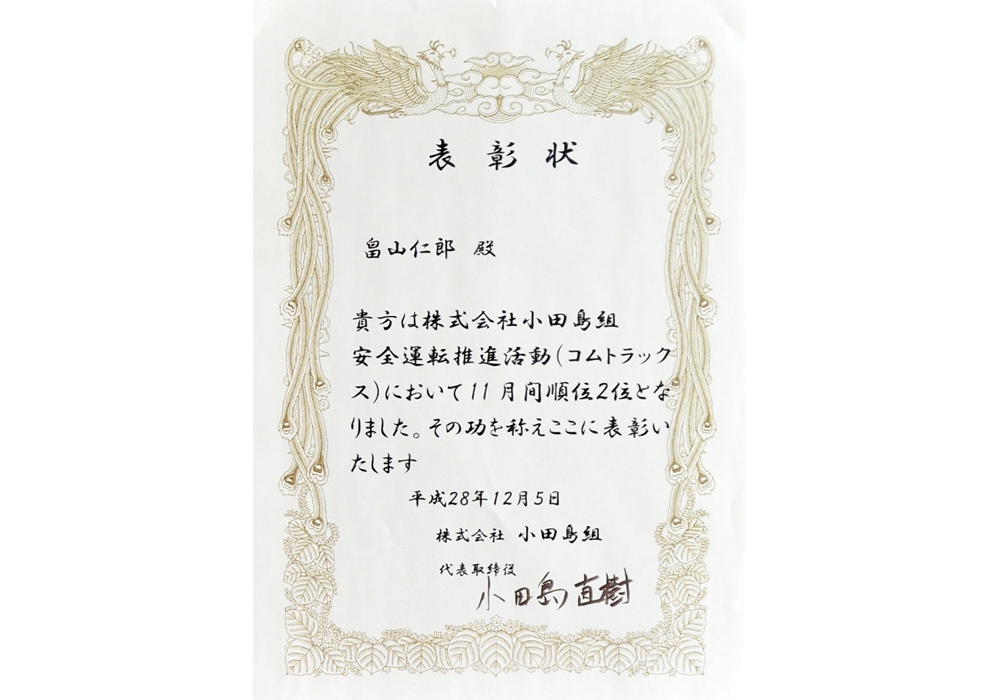 表彰状
畠山仁郎 殿
貴方は株式会社小田島組
安全運転推進活動(コムトラック
ス)において11月間順位2位とな
りました。その功を称えここに表彰い
たします
平成28年12月5日
株式会社 小田島組
代表取締役
小田島直樹